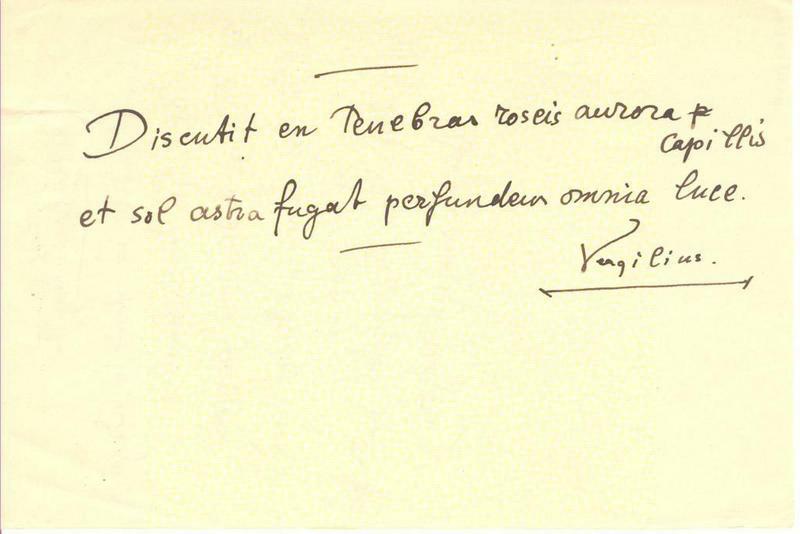 Discutit en Tenebras roseis aurora
capillis
et sol astra fugat perfundens omnia luce.
Vergilius.